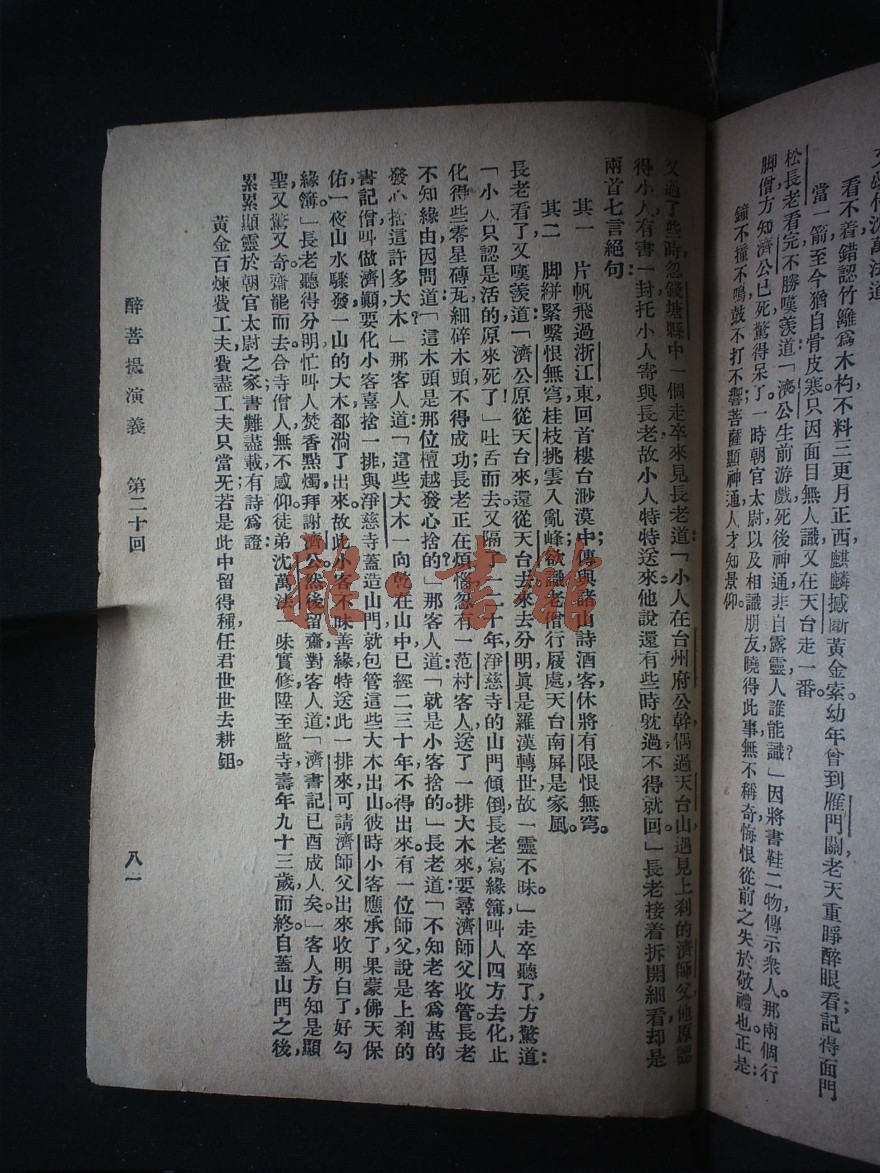 看不着錯認竹籬爲木杓不料三更月正西麒麟撼斷黃金索幼年曾到雁門關老天重睜醉眼看記得面門
當一箭至今猶自骨皮寒只因面目無人識又在天台走一番。
松長老看完不勝嘆羨道「濟公生前游戲死後神通非自露靈人誰能識」因將書鞋二物傳示衆人那兩個行
脚僧方知濟公已死驚得呆了一時朝官太尉以及相識朋友曉得此事無不稱奇悔恨從前之失於敬禮也正是：
鐘不撞不鳴鼓不打不響菩薩顯神通人才知景仰。
又過了些時忽錢塘縣中一個走卒來見長老道：「小人在台州府公幹偶過天台山遇見上刹的濟師父他原認
得小人有書一封托小人寄與長老故小人特特送來他說還有些時躭過不得就回」長老接着拆開細看却是
兩首七言絕句：
其一　片帆飛過浙江東回首樓台渺漠中傳與諸山詩酒客休將有限恨無窮。
其二　脚絣緊繫恨無窮桂枝挑雲入亂峰欲識老僧行履處天台南屏是家風。
長老看了又嘆羨道「濟公原從天台來還從天台去來去分明眞是羅漢轉世故一靈不昧」走卒聽了方驚道：
「小人只認是活的原來死了」吐舌而去又隔了一二十年淨慈寺的山門傾倒長老寫緣簿叫人四方去化止
化得些零星磚瓦細碎木頭不得成功長老正在煩惱忽有一范村客人送了一排大木來要尋濟師父收管長老
不知緣由因問道「這木頭是那位檀越發心捨的」那客人道：「就是小客捨的」長老道：「不知老客爲甚的
發心捨這許多大木」那客人道「這些大木一向乾在山中已經二三十年不得出來有一位師父說是上刹的
書記僧叫做濟顚要化小客喜捨一排與淨慈寺蓋造山門就包管這些大木出山彼時小客應承了果蒙佛天保
佑一夜山水驟發一山的大木都淌了出來故此小客不昧善緣特送此一排來可請濟師父出來收明白了好勾
緣簿」長老聽得分明忙叫人焚香點燭拜謝濟公然後留齋對客人道「濟書記已酉成人矣」客人方知是顯
聖又驚又奇齋罷而去合寺僧人無不感仰徒弟沈萬法一味實修陞至監寺壽年九十三歲而終自蓋山門之後
累累顯靈於朝官太尉之家書難盡載有詩爲證：
黃金百煉費工夫費盡工夫只當旡若是此中留得種任君世世去耕鉏。
醉菩提演義　第二十回
八一